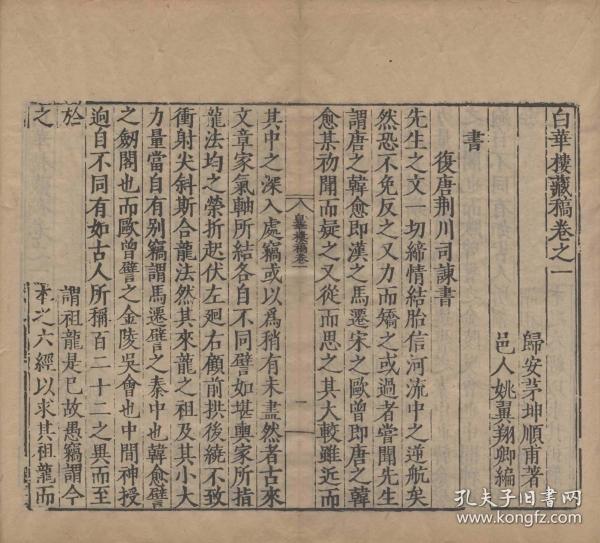 白華樓藏稿卷之一
歸安茅坤順甫著
邑人姚翼翔卿編
書
復唐荆川司諫書
先生之文一切締情結胎信河流中之逆航矣
然恐不免反之又力而矯之或過者嘗聞先生
謂唐之韓愈即漢之馬遷宋之歐曾即唐之韓
愈某初聞而疑之又從而思之其大較雖近而
白華樓稿卷一
一
其中之深入處竊或以爲稍有未盡然者古來
文章家氣軸所結各自不同譬如堪輿家所指
龍法均之縈折起伏左廻右顧前拱後繞不致
衝射尖斜斯合龍法然其來龍之祖及其小大
力量當自有别竊謂馬遷譬之秦中也韓愈譬
之劒閣也而歐曾譬之金陵吳會也中間神授
迥自不同有如古人所稱百二十二之異而至
於
謂祖龍是已故愚竊謂今
之
本之六經以求其祖龍而
孔夫子旧书网
www.kongfz.com